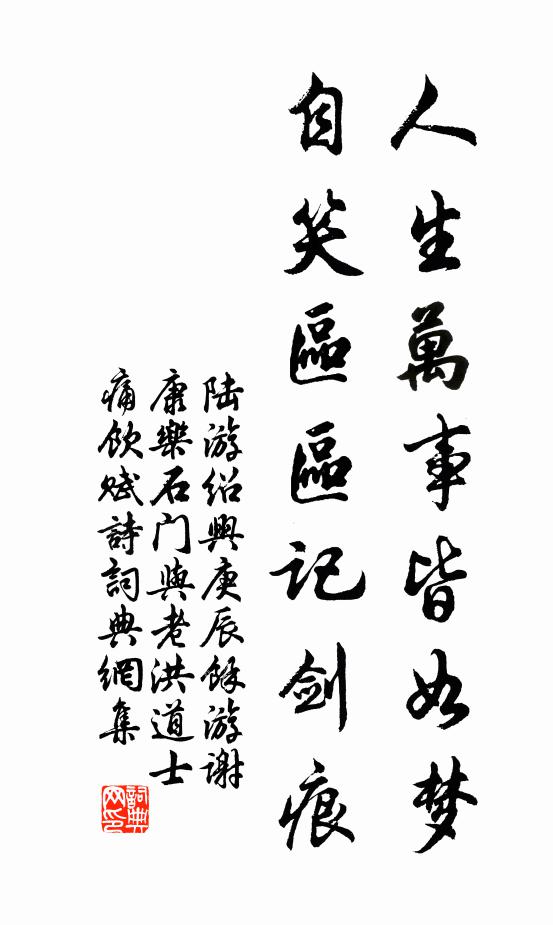 人生萬事皆如梦
自笑區區記剑痕
陆游绍興庚辰馀游谢
康樂石门與老洪道士
痛飲赋詩詞典網集
詞典
网印